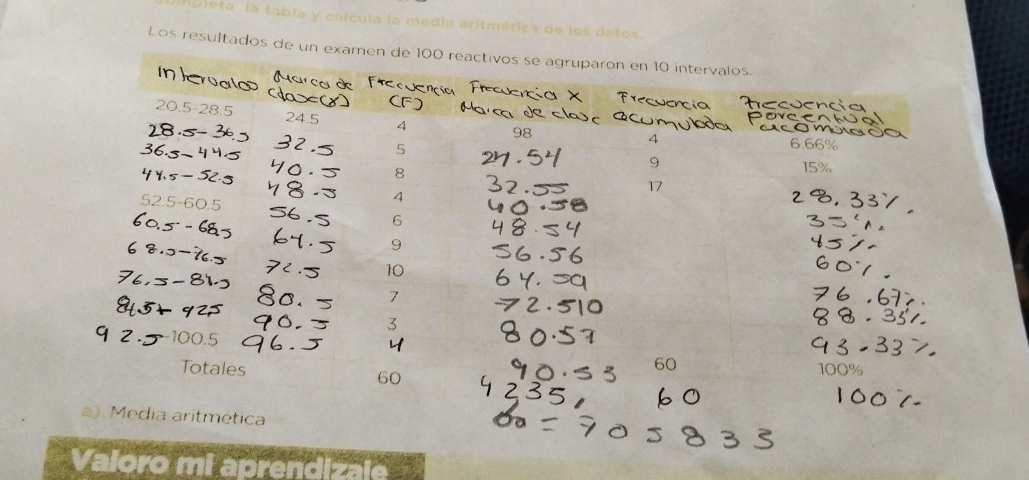 Completa la tabla y calcula la media aritmética de los datos.
Los resultados de un examen de 100 reactivos se agruparon en 10 intervalos.
Intervalos Marca de clase(x) Frecuencia (F) Frecuencia x Marca de clase Frecuencia acumulada Frecuencia porcentual acomulada
20.5-28.5 24.5 4 98 4 6.66%
28.5-36.5 32.5 5 24.54 9 15%
36.5-44.5 40.5 8 32.55 17 28.33%.
44.5-52.5 48.5 4 40.58 35%.
52.5-60.5 56.5 6 48.54 45%.
60.5-68.5 64.5 9 56.56 60%.
68.5-76.5 72.5 10 64.59 76.67%.
76.5-84.5 80.5 7 72.510 88.33%.
84.5+ 925 90.5 3 80.57 93.33%.
92.5-100.5 96.5 4 90.53 60 100%
Totales 60 4235, 60 100%
a) Media aritmética = 705833
Valoro mi aprendizaje